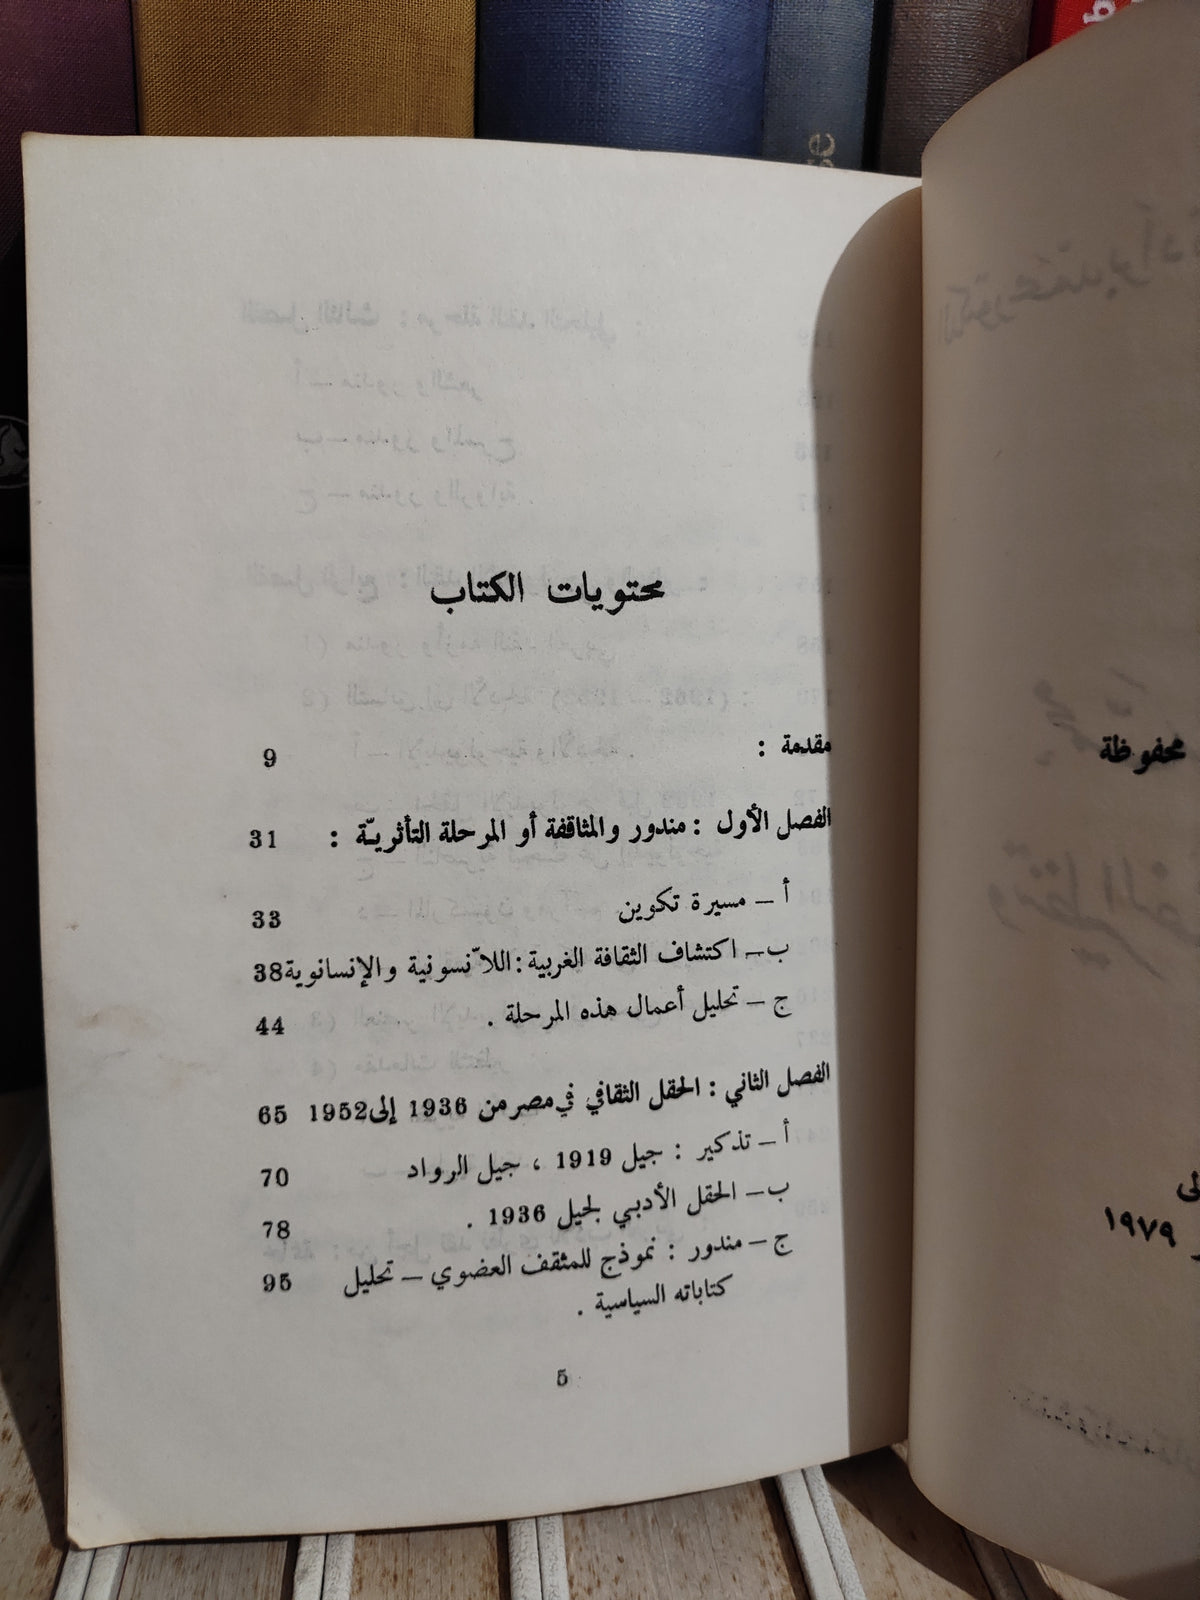 محتويات الكتاب
مقدمة : 9
الفصل الأول : مندور والمثاقفة أو المرحلة التأثريّة : 31
أ ــ مسيرة تكوين 33
ب ــ اكتشاف الثقافة الغربية : اللاّنسونية والإنسانوية 38
ج ــ تحليل أعمال هذه المرحلة . 44
الفصل الثاني : الحقل الثقافي في مصر من 1936 إلى 1952 65
أ ــ تذكير : جيل 1919 ، جيل الرواد 70
ب ــ الحقل الأدبي لجيل 1936 . 78
ج ــ مندور : نموذج للمثقف العضوي ــ تحليل 95
كتاباته السياسية .
5
محفوظة
١٩٧٩